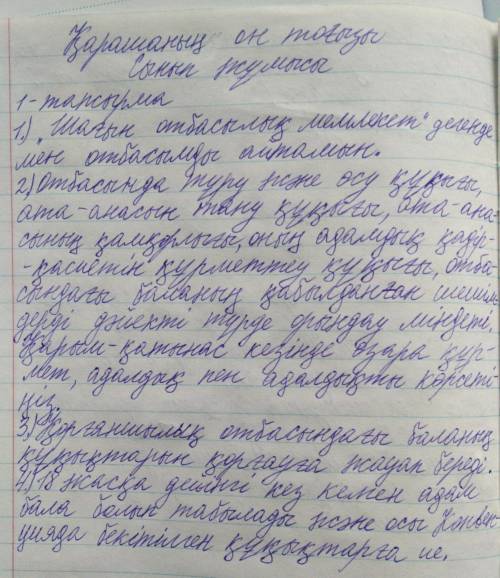 Қарашаның он тоғызы
Сынып жұмысы
1-тапсырма
1.) "Шағын отбасылық мемлекет" дегенде
мен отбасымды айтамын.
2) Отбасында тұру және өсу құқығы,
ата-анасын тану құқығы, ата-ана
сының қамқорлығы, оның адамдық қадір-
-қасиетін құрметтеу құқығы, отба-
сындағы баланың қабылданған шешім
дерді дәйекті түрде орындау міндеті,
Қарым-қатынас кезінде өзара құр-
мет, адалдық пен адалдықты көрсеті-
ңіз.
3) Қорғаншылық отбасындағы баланың
құқықтарын қорғауға жауап береді.
4) 18 жасқа дейінгі кез келген адам
бала болып табылады және осы Конвен-
цияда бекітілген құқықтарға ие.